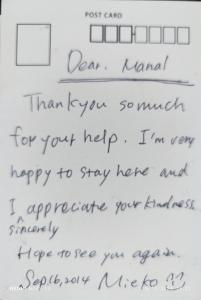 POST CARD
Dear. Manal
Thankyou so much
for your help. I'm very
happy to stay here and
I appreciate your kindness.
sincerely
Hope to see you again.
Sep,16,2014 Mieko